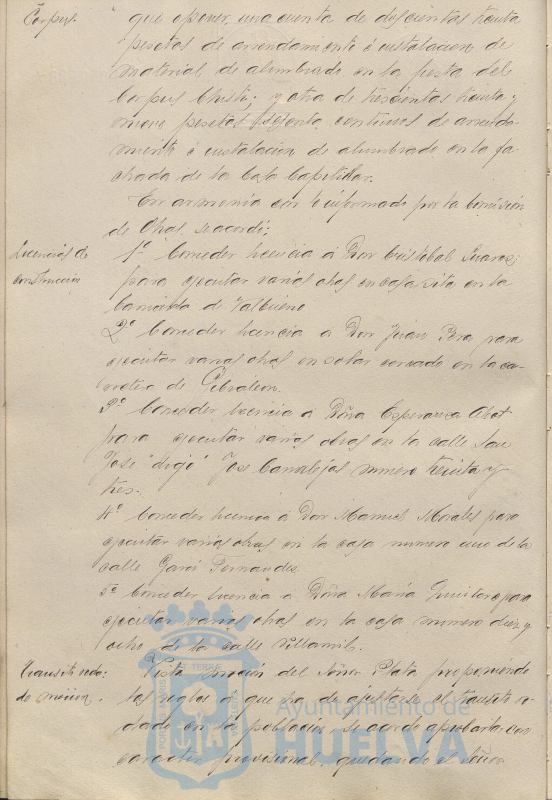 Corpus.
que oponer, una cuenta de doscientas treinta
pesetas de arrendamiento é instalacion de
material de alumbrado en la fiesta del
Corpus Christi; y otra de trescientas treinta y
nueve pesetas sesenta centimos de arrenda-
miento é instalacion de alumbrado en la fa-
chada de la Casa Capitular.
En armonia con lo informado por la Comisión
de Obras, se acordó:
Licencias de
construcción
1º Conceder licencia á Don Cristobal Suarez
para ejecutar varias obras en casa sita en la
barriada de
2º Conceder licencia a Don Juan para
ejecutar varias obras en solar cercado en la ca-
rretera de Gibraleon.
3º Conceder licencia á Doña Esperanza
para ejecutar varias obras en la calle San
José digo José Canalejas numero treinta y
tres.
4º Conceder licencia á Don Manuel Morales para
ejecutar varias obras en la casa numero uno de la
calle Garci Fernandez
5º Conceder licencia á Doña Maria Quintero para
ejecutar varias obras en la casa numero diez y
ocho de la calle Villamil.
Transito roda-
do
Vista moción del Señor Plata proponiendo
las reglas á que ha de ajustarse el transito ro-
dado en la población, se acordó aprobarla con
caracter provisional, quedando el señor
Ayuntamiento de
HUELVA